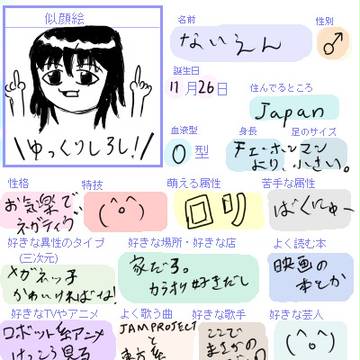 似顔絵
\ゆっくりしろし!/
名前
性別
ないえん
♂
誕生日
11月26日
住んでるところ
Japan
血液型
身長
足のサイズ
O型
チェ・ホンマン
より、小さい。
性格
特技
萌える属性
苦手な属性
お気楽で
ネガティヴ
(^o^)
ロリ
ばくにゅー
好きな異性のタイプ
(三次元)
好きな場所・好きな店
よく読む本
メガネッ子
かわいければね!
家だろ。
カラオケ好きだし
映画の
本とか
好きなTVやアニメ
よく歌う曲
好きな歌手
好きな芸人
ロボット系アニメ
けっこう見る
JAM PROJECT
と
ここで
(^o^)